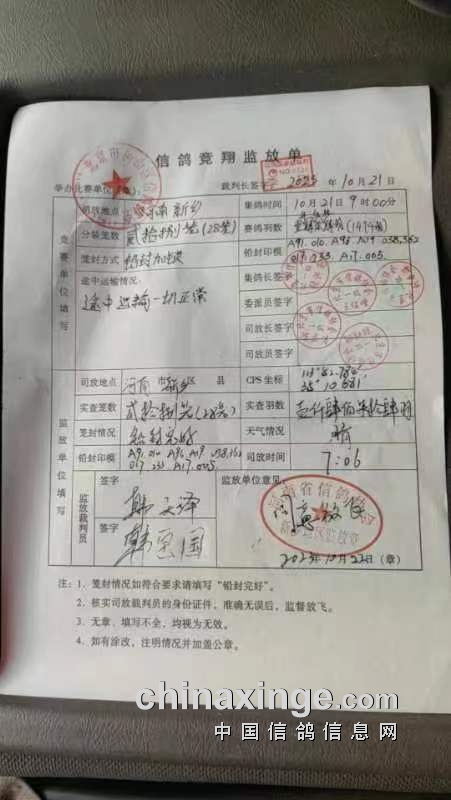 信鸽竞翔监放单
举办比赛单位（章）： 裁判长签字： 2023 年 10 月 21 日
竞赛单位填写
司放地点 河南 新乡 集鸽时间 10月21日9时00分
分装笼数 贰拾捌笼(28笼) 赛鸽羽数 (1474羽)
笼封方式 铅封加皮 铅封印模 A91.010 A96 A09 038,162
017.233 A17.005
途中运输情况： 集鸽长签字
途中运输一切正常 委派员签字
司放长签字
司放员签字
监放单位填写
司放地点 河南 省 新乡 县 GPS 坐标
35° 10′681″
实查笼数 贰拾捌笼(28笼) 实查羽数 壹仟肆佰柒拾肆羽
笼封情况 铅封完好 天气情况 晴
铅封印模 A91.010 A96 A09 038,162
017.233 A17.005 司放时间 7:06
监放裁判员
签字 监放单位意见：
韩文泽
签字
韩国
河南省信鸽协会
2023年10月22日（章）
注：1．笼封情况如符合要求请填写“铅封完好”。
2．核实司放裁判员的身份证件，准确无误后，监督放飞。
3．无章、填写不全，均视为无效。
4．如有涂改，注明情况并加盖公章。
chinaxinge.com
中国信鸽信息网